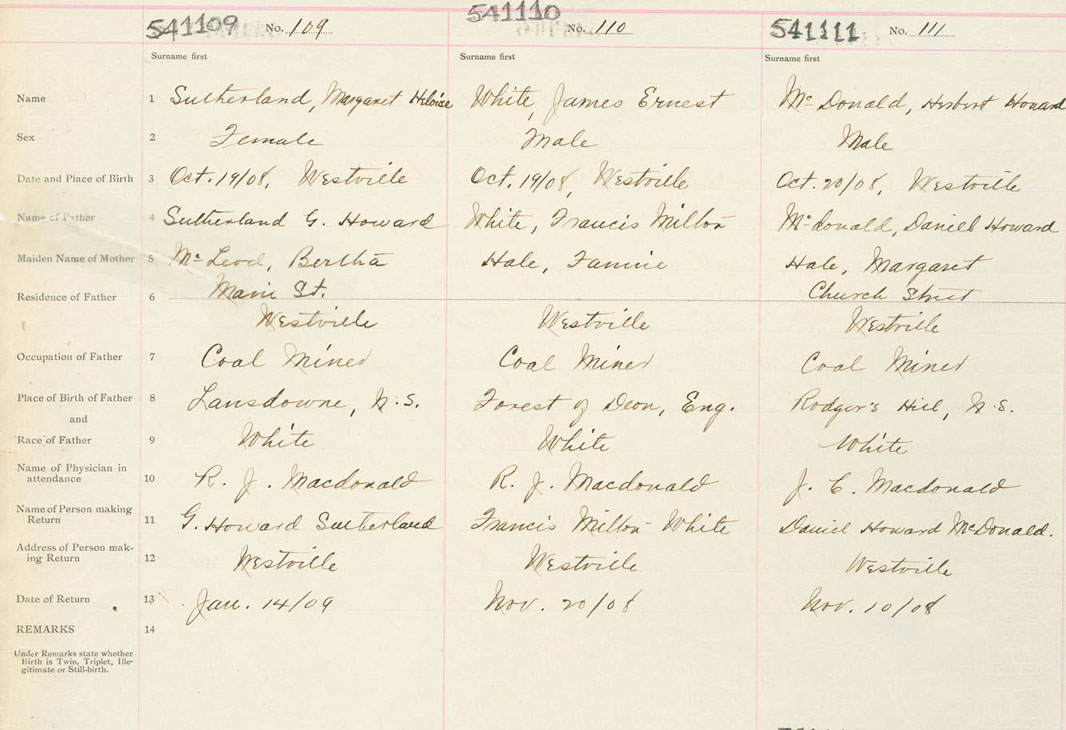 541109 No. 109 541110 No. 110 541111 No. 111
Surname first Surname first Surname first
Name 1 Sutherland, Margaret Heloise White, James Ernest Mc Donald, Herbert Howard
Sex 2 Female Male Male
Date and Place of Birth 3 Oct. 19/08, Westville Oct. 19/08, Westville Oct. 20/08, Westville
Name of Father 4 Sutherland G. Howard White, Francis Milton Mcdonald, Daniel Howard
Maiden Name of Mother 5 Mc Leod, Bertha Hale, Fannie Hale, Margaret
Main St. Church Street
Residence of Father 6
Westville Westville Westville
Occupation of Father 7 Coal Miner Coal Miner Coal Miner
Place of Birth of Father 8 Lansdowne, N.S. Forest of Dean, Eng. Rodger's Hill, N.S.
and
Race of Father 9 White White White
Name of Physician in
attendance 10 R. J. Macdonald R. J. Macdonald J. C. Macdonald
Name of Person making
Return 11 G. Howard Sutherland Francis Milton White Daniel Howard McDonald.
Address of Person mak-
ing Return 12 Westville Westville Westville
Date of Return 13 Jan. 14/09 Nov. 20/08 Nov. 10/08
REMARKS 14
Under Remarks state whether
Birth is Twin, Triplet, Ille-
gitimate or Still-birth.